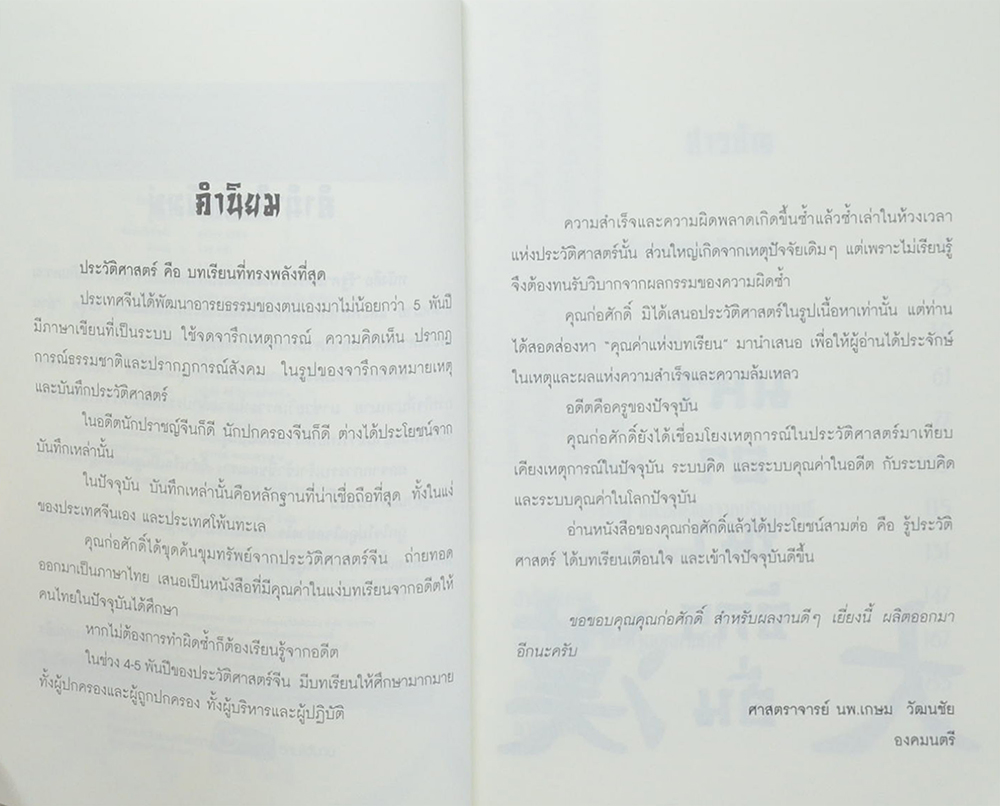 คำนิยม
ประวัติศาสตร์ คือ บทเรียนที่ทรงพลังที่สุด
ประเทศจีนได้พัฒนาอารยธรรมของตนเองมาไม่น้อยกว่า 5 พันปี
มีภาษาเขียนที่เป็นระบบ ใช้จดจารึกเหตุการณ์ ความคิดเห็น ปรากฏ
การณ์ธรรมชาติและปรากฏการณ์สังคม ในรูปของจารึกจดหมายเหตุ
และบันทึกประวัติศาสตร์
ในอดีตนักปราชญ์จีนก็ดี นักปกครองจีนก็ดี ต่างได้ประโยชน์จาก
บันทึกเหล่านั้น
ในปัจจุบัน บันทึกเหล่านั้นคือหลักฐานที่น่าเชื่อถือที่สุด ทั้งในแง่
ของประเทศจีนเอง และประเทศโพ้นทะเล
คุณก่อศักดิ์ได้ขุดค้นขุมทรัพย์จากประวัติศาสตร์จีน ถ่ายทอด
ออกมาเป็นภาษาไทย เสนอเป็นหนังสือที่มีคุณค่าในแง่บทเรียนจากอดีตให้
คนไทยในปัจจุบันได้ศึกษา
หากไม่ต้องการทำผิดซ้ำก็ต้องเรียนรู้จากอดีต
ในช่วง 4-5 พันปีของประวัติศาสตร์จีน มีบทเรียนให้ศึกษามากมาย
ทั้งผู้ปกครองและผู้ถูกปกครอง ทั้งผู้บริหารและผู้ปฏิบัติ
ความสำเร็จและความผิดพลาดเกิดขึ้นซ้ำแล้วซ้ำเล่าในห้วงเวลา
แห่งประวัติศาสตร์นั้น ส่วนใหญ่เกิดจากเหตุปัจจัยเดิมๆ แต่เพราะไม่เรียนรู้
จึงต้องทนรับวิบากจากผลกรรมของความผิดซ้ำ
คุณก่อศักดิ์ มิได้เสนอประวัติศาสตร์ในรูปเนื้อหาเท่านั้น แต่ท่าน
ได้สอดส่องหา “คุณค่าแห่งบทเรียน” มานำเสนอ เพื่อให้ผู้อ่านได้ประจักษ์
ในเหตุและผลแห่งความสำเร็จและความล้มเหลว
อดีตคือครูของปัจจุบัน
คุณก่อศักดิ์ยังได้เชื่อมโยงเหตุการณ์ในประวัติศาสตร์มาเทียบ
เคียงเหตุการณ์ในปัจจุบัน ระบบคิด และระบบคุณค่าในอดีต กับระบบคิด
และระบบคุณค่าในโลกปัจจุบัน
อ่านหนังสือของคุณก่อศักดิ์แล้วได้ประโยชน์สามต่อ คือ รู้ประวัติ
ศาสตร์ ได้บทเรียนเตือนใจ และเข้าใจปัจจุบันดีขึ้น
ขอขอบคุณคุณก่อศักดิ์ สำหรับผลงานดีๆ เยี่ยงนี้ ผลิตออกมา
อีกนะครับ
ศาสตราจารย์ นพ.เกษม วัฒนชัย
องคมนตรี